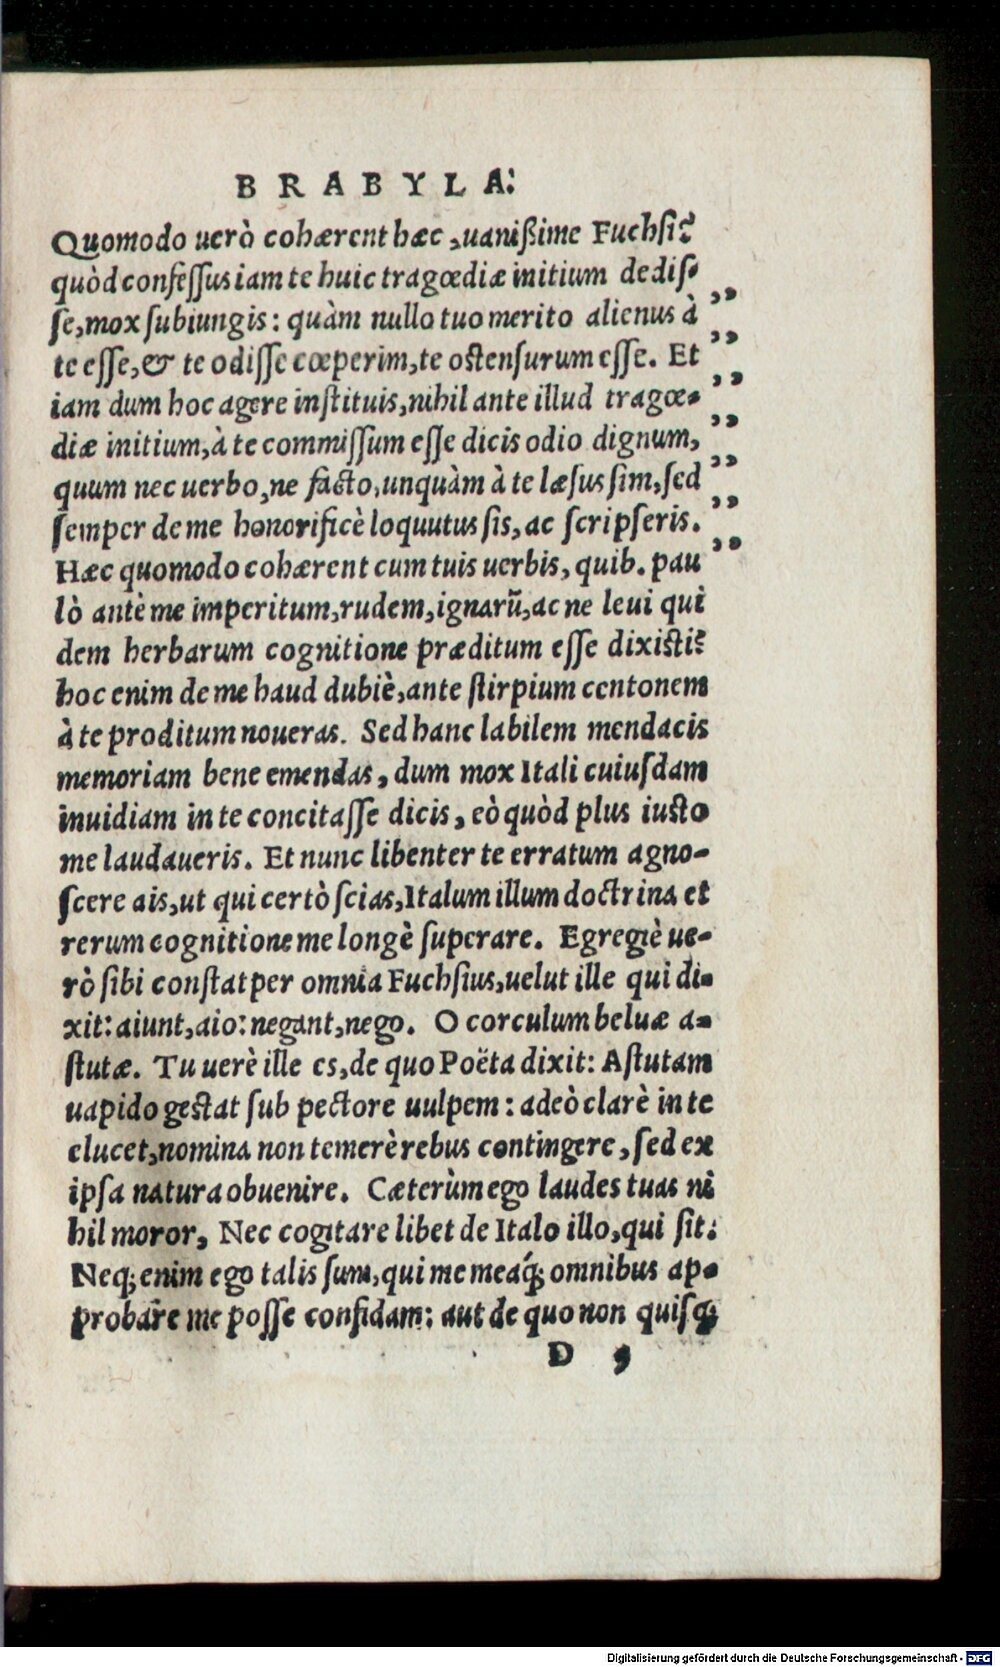 BRABYLA:
Quomodo uerò cohærent hæc, uanißime Fuchsi?
quòd confessus iam te huic tragœdiæ initium dedis-
se, mox subiungis: quàm nullo tuo merito alienus à ,,
te esse, & te odisse cœperim, te ostensurum esse. Et ,,
iam dum hoc agere instituis, nihil ante illud tragœ- ,,
diæ initium, à te commissum esse dicis odio dignum, ,,
quum nec uerbo, ne facto, unquàm à te læsus sim, sed ,,
semper de me honorificè loquutus sis, ac scripseris. ,,
Hæc quomodo cohærent cum tuis uerbis, quib. pau ,,
lò antè me imperitum, rudem, ignarū, ac ne leui qui
dem herbarum cognitione præditum esse dixisti?
hoc enim de me haud dubiè, ante stirpium centonem
à te proditum noueras. Sed hanc labilem mendacis
memoriam bene emendas, dum mox Itali cuiusdam
inuidiam in te concitasse dicis, eò quòd plus iusto
me laudaueris. Et nunc libenter te erratum agno-
scere ais, ut qui certò scias, Italum illum doctrina et
rerum cognitione me longè superare. Egregiè ue-
rò sibi constat per omnia Fuchsius, uelut ille qui di-
xit: aiunt, aio: negant, nego. O corculum beluæ a-
stutæ. Tu uerè ille es, de quo Poëta dixit: Astutam
uapido gestat sub pectore uulpem: adeò clarè in te
elucet, nomina non temerè rebus contingere, sed ex
ipsa natura obuenire. Cæterùm ego laudes tuas ni
hil moror, Nec cogitare libet de Italo illo, qui sit:
Neq; enim ego talis sum, qui me meaq́; omnibus ap-
probare me posse confidam: aut de quo non quisq;
D 9
Digitalisierung gefördert durch die Deutsche Forschungsgemeinschaft - DFG